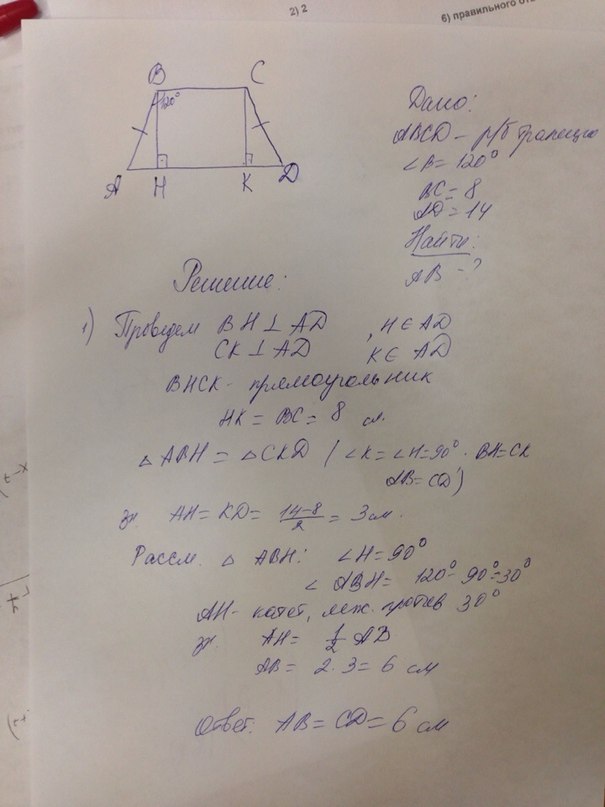 2) 2
6) правильного отв
B
C
120°
A
H
K
D
Дано:
ABCD – р/б трапеция
∠B = 120°
BC = 8
AD = 14
Найти:
AB – ?
Решение:
1) Проведем BH ⊥ AD , H ∈ AD
CK ⊥ AD K ∈ AD
BHCK - прямоугольник
HK = BC = 8 см.
△ ABH = △ CKD ( ∠K = ∠H = 90°, BH = CK
AB = CD )
зн. AH = KD = (14-8)/2 = 3 см.
Рассм. △ ABH: ∠H = 90°
∠ ABH = 120° - 90° = 30°
AH - катет, леж. против 30°
зн. AH = 1/2 AB
AB = 2 · 3 = 6 см
Ответ. AB = CD = 6 см